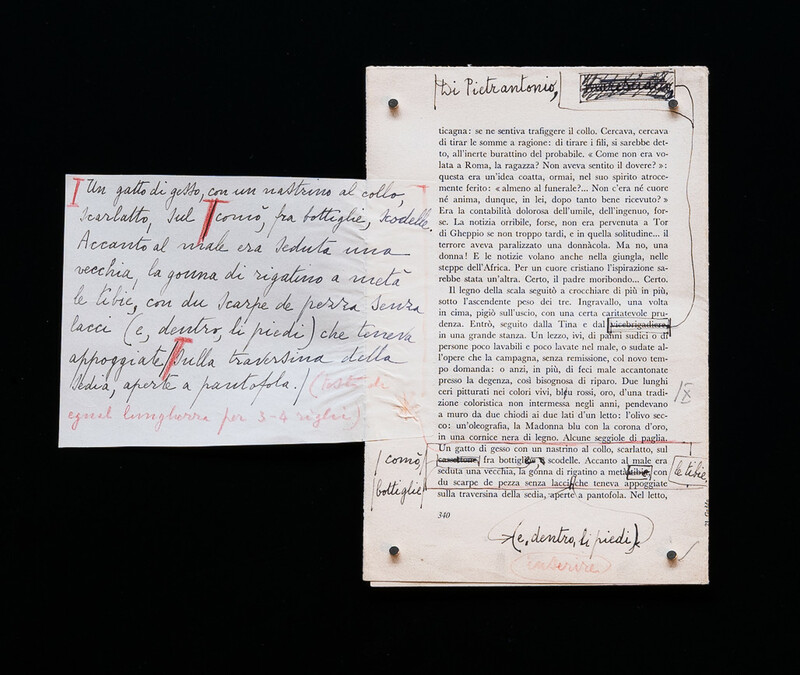 I Un gatto di gesso, con un nastrino al collo,
scarlatto, sul comò, fra bottiglie, scodelle.
Accanto al male era seduta una
vecchia, la gonna di rigatino a metà
le tibie, con du scarpe de pezza senza
lacci (e, dentro, li piedi) che teneva
appoggiate sulla traversina della
sedia, aperte a pantofola. / (testo di
egual lunghezza per 3-4 righi)
Di Pietrantonio,
ticagna: se ne sentiva trafiggere il collo. Cercava, cercava
di tirar le somme a ragione: di tirare i fili, si sarebbe det-
to, all'inerte burattino del probabile. « Come non era vo-
lata a Roma, la ragazza? Non aveva sentito il dovere? »:
questa era un'idea coatta, ormai, nel suo spirito atroce-
mente ferito: « almeno al funerale?... Non c'era né cuore
né anima, dunque, in lei, dopo tanto bene ricevuto? »
Era la contabilità dolorosa dell'umile, dell'ingenuo, for-
se. La notizia orribile, forse, non era pervenuta a Tor
di Gheppio se non troppo tardi, e in quella solitudine... il
terrore aveva paralizzato una donnàcola. Ma no, una
donna! E le notizie volano anche nella giungla, nelle
steppe dell'Africa. Per un cuore cristiano l'ispirazione sa-
rebbe stata un'altra. Certo, il padre moribondo... Certo.
Il legno della scala seguitò a crocchiare di più in più,
sotto l'ascendente peso dei tre. Ingravallo, una volta
in cima, pigiò sull'uscio, con una certa caritatevole pru-
denza. Entrò, seguito dalla Tina e dal vicebrigadiere,
in una grande stanza. Un lezzo, ivi, di panni sudici o di
persone poco lavabili e poco lavate nel male, o sudate al-
l'opere che la campagna, senza remissione, col novo tem-
po domanda: o anzi, in più, di feci male accantonate
presso la degenza, così bisognosa di riparo. Due lunghi
ceri pitturati nei colori vivi, blu rossi, oro, d'una tradi-
zione coloristica non intermessa negli anni, pendevano
a muro da due chiodi ai due lati d'un letto: l'olivo sec-
co: un'oleografia, la Madonna blu con la corona d'oro,
in una cornice nera di legno. Alcune seggiole di paglia.
Un gatto di gesso con un nastrino al collo, scarlatto, sul
fra bottiglie scodelle. Accanto al male era
seduta una vecchia, la gonna di rigatino a metà tibie, con
du scarpe de pezza senza lacci che teneva appoggiate
sulla traversina della sedia, aperte a pantofola. Nel letto,
IX
comò
bottiglie
le tibie,
340
(e, dentro, li piedi)
inserire